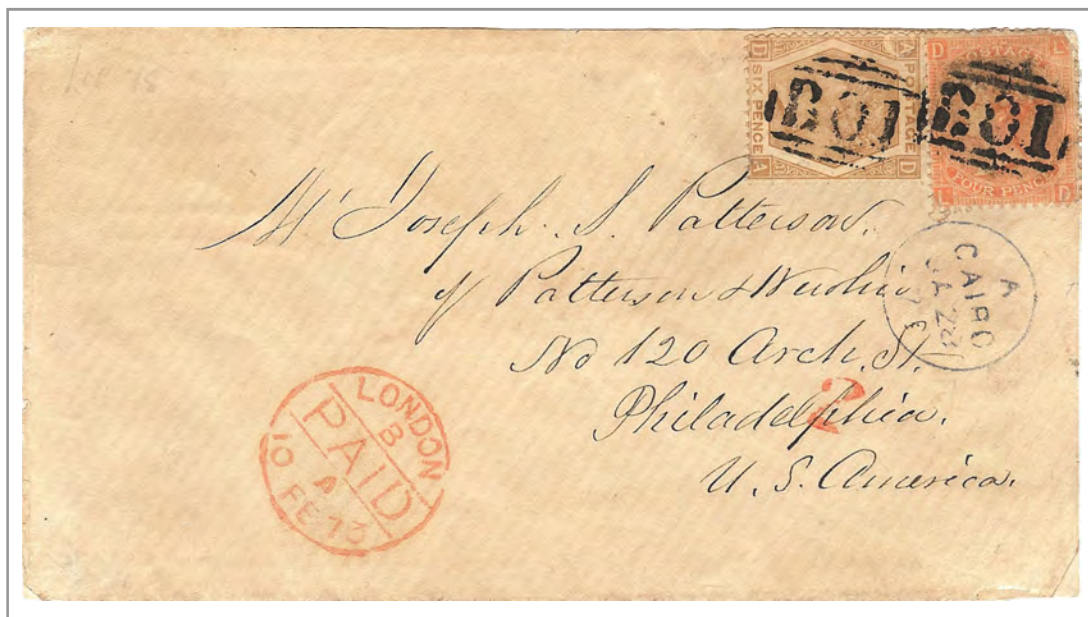 D A
SIX PENCE
POSTAGE
A D
D L
POSTAGE
FOUR PENCE
L D
B01
B01
Mr Joseph. S. Patterson.
of Patterson &
No 120 Arch. St.
Philadelphia.
U. S. America.
A
CAIRO
JA 28
2
LONDON
B
PAID
A
10
FE 73